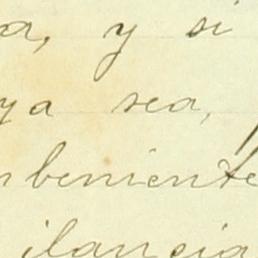 a, y si
ya sea,
nbeniente
ilancia